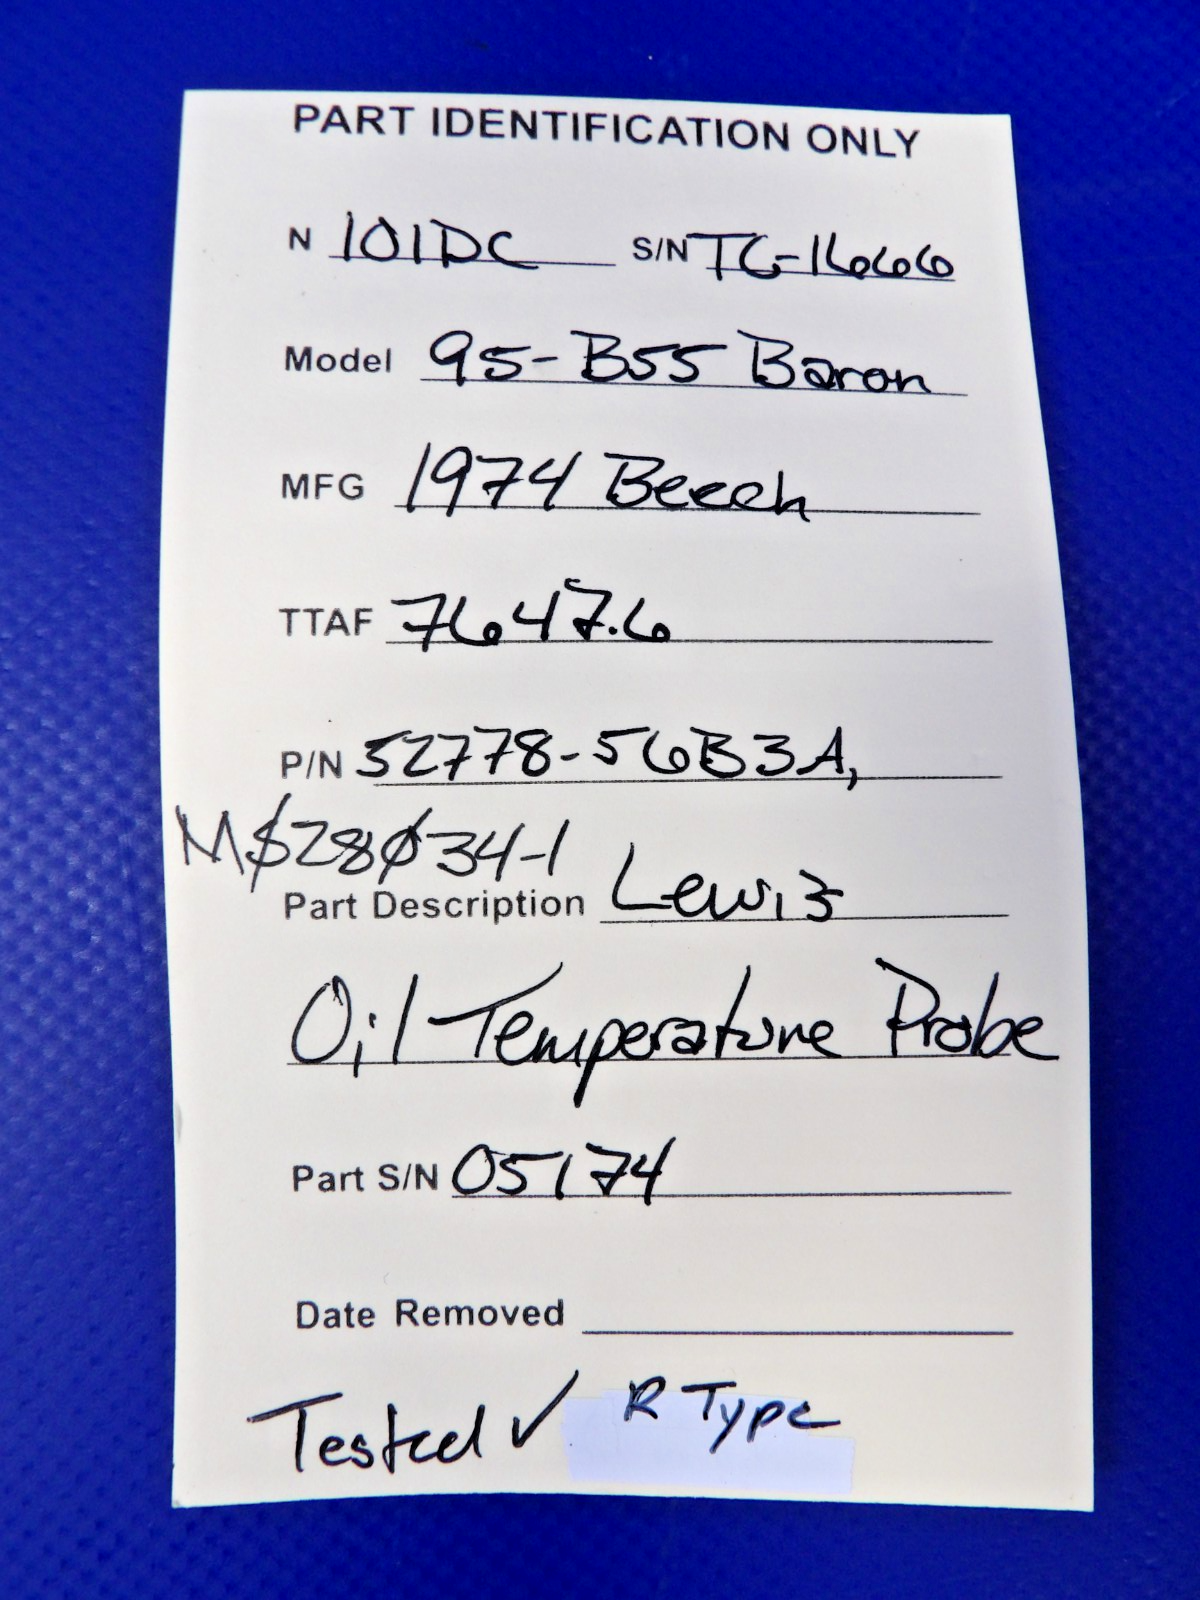 PART IDENTIFICATION ONLY
N 101DC S/N TC-1666
Model 95-B55 Baron
MFG 1974 Beech
TTAF 7647.6
P/N 52778-56B3A,
MS28034-1
Part Description Lewis
Oil Temperature Probe
Part S/N 05174
Date Removed
Tested ✓ R Type